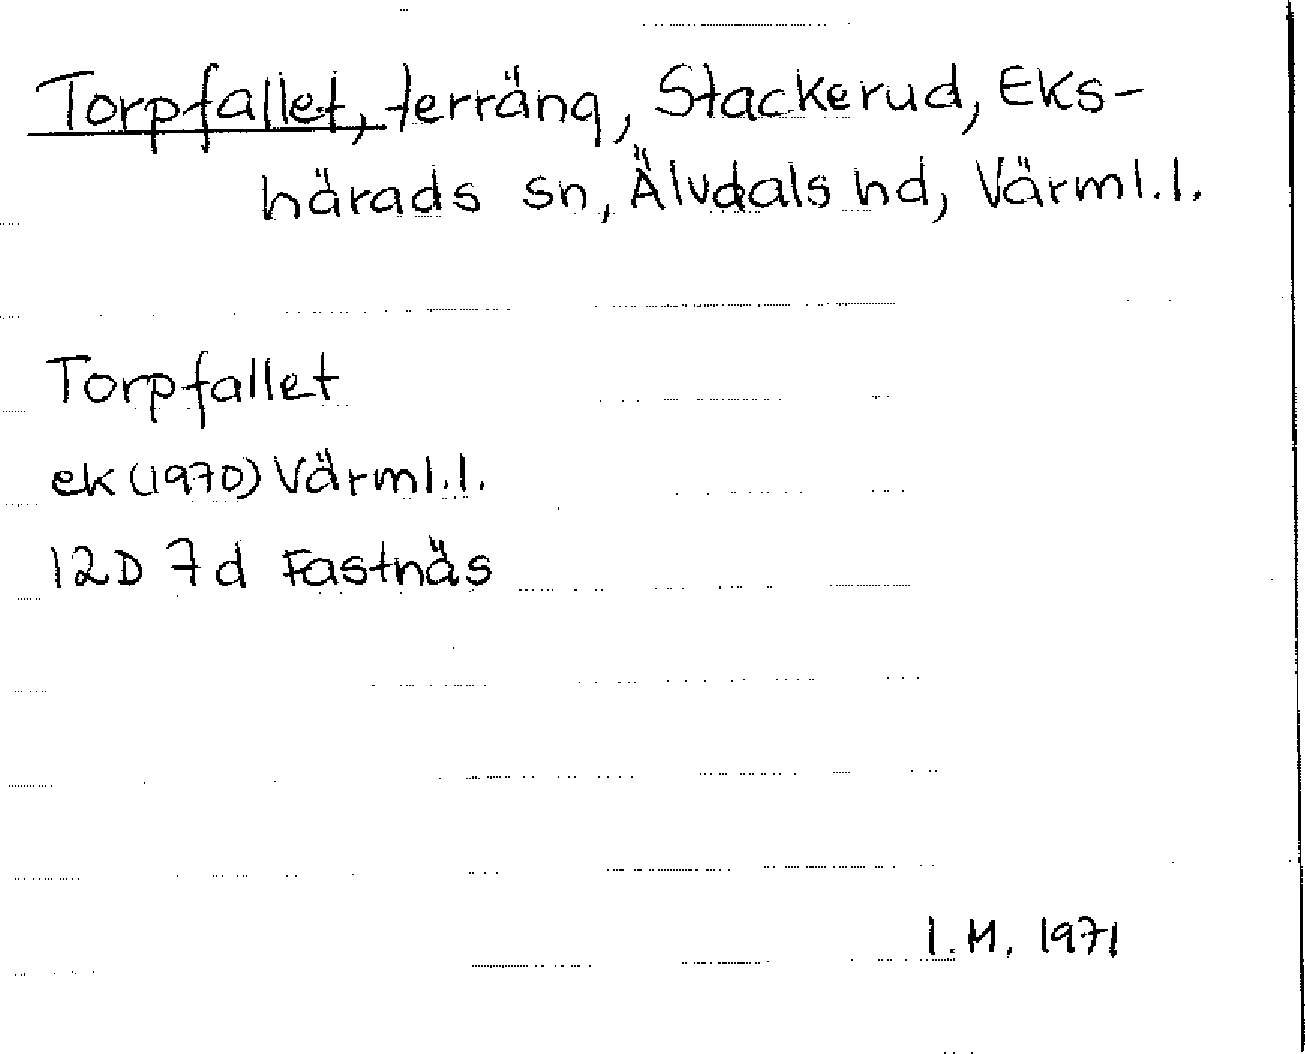 Torpfallet, terräng, Stackerud, Eks-
härads sn, Älvdals hd, Värml.l.
Torpfallet
ek (1970) Värml.l.
12D 7d Fastnäs
I.M. 1971